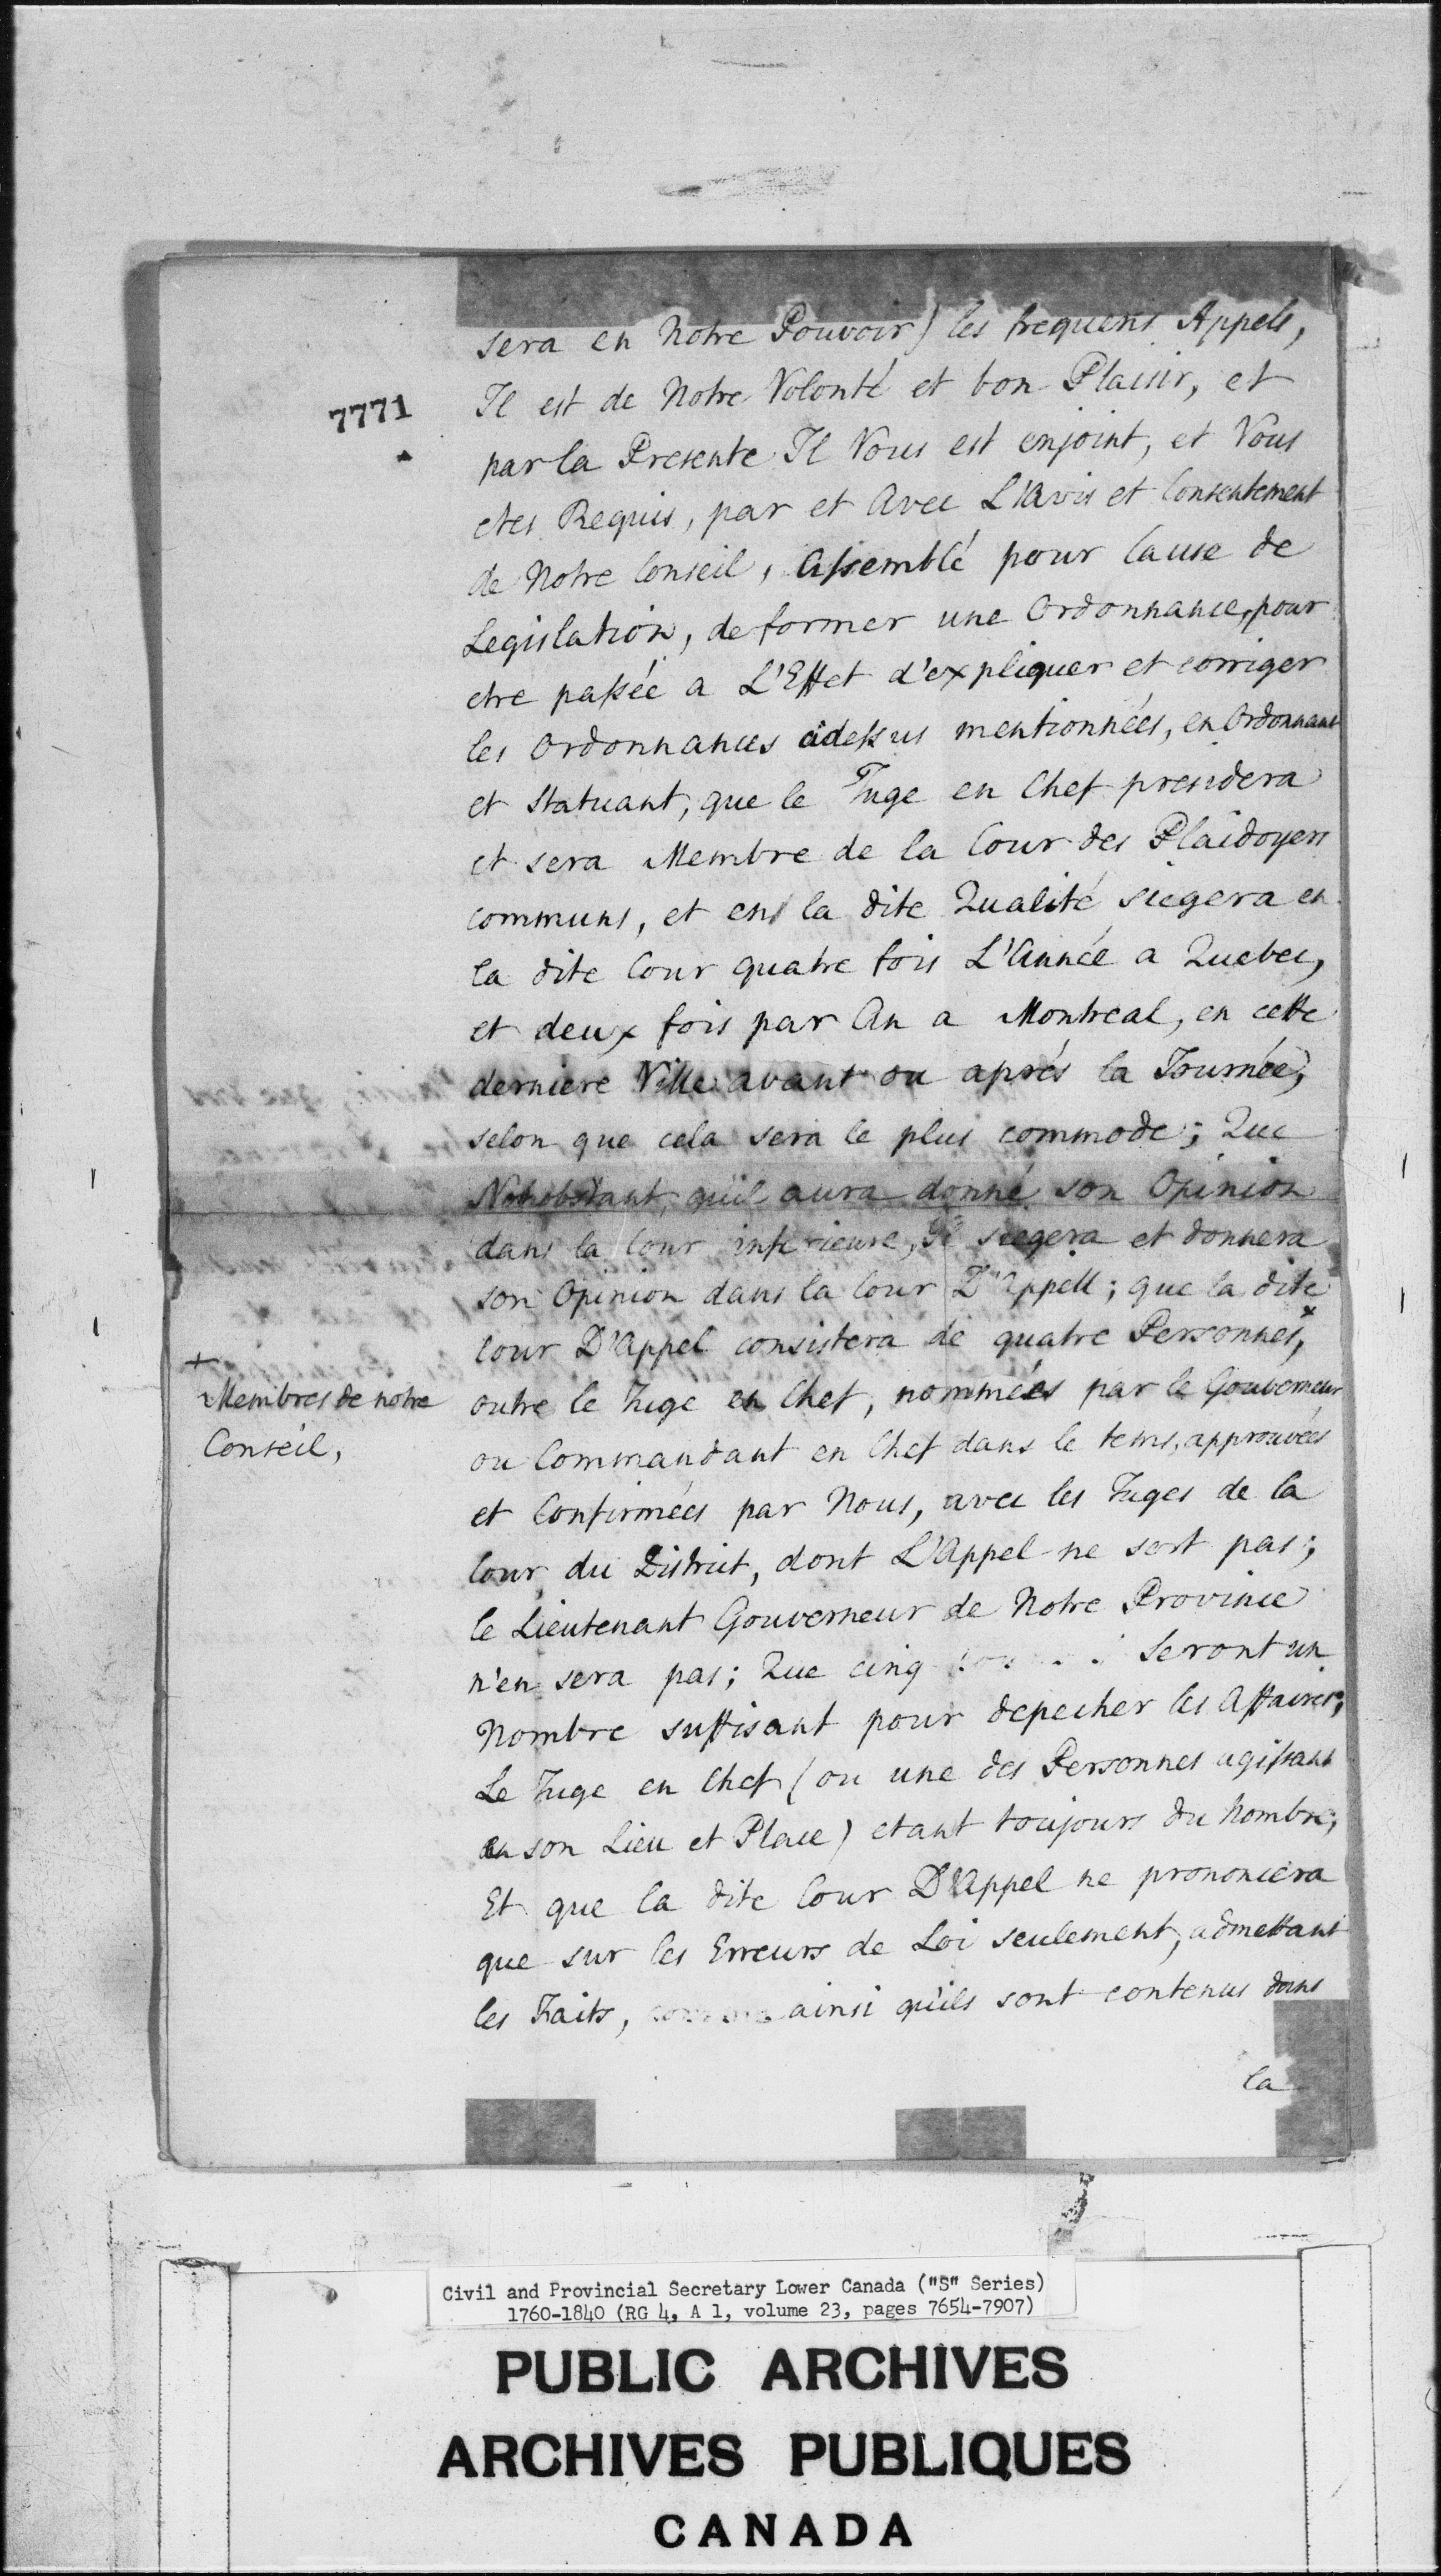 sera en Notre Pouvoir) les frequens Appels,
7771
Il est de Notre Volonté et bon Plaisir, et
par la Presente Il Vous est enjoint, et Vous
etes Requis, par et Avec L'Avis et Consentement
de Notre Conseil, Assemblé pour Cause de
Legislation, de former une Ordonnance, pour
etre passée a L'Effet d'expliquer et corriger
les Ordonnances cidessus mentionnées, en Ordonnant
et Statuant, que le Juge en Chef presidera
et sera Membre de la Cour des Plaidoyers
communs, et en la dite Qualité siegera en
la dite Cour quatre fois L'Année a Quebec,
et deux fois par An a Montreal, en cette
derniere Ville avant ou aprés la Tournée,
selon que cela sera le plus commode; Que
Nonobstant, qu'il aura donné son Opinion
dans la Cour inferieure, Il siegera et donnera
son Opinion dans la Cour D'Appell; que la dite
Cour D'Appel consistera de quatre Personnes, x
+
Membres de notre
Conseil,
outre le Juge en Chef, nommées par le Gouverneur
ou Commandant en Chef dans le tems, approuvées
et Confirmées par Nous, avec les Juges de la
Cour du District, dont L'Appel ne sort pas;
le Lieutenant Gouverneur de Notre Province
n'en sera pas; Que cinq seront un
Nombre suffisant pour depecher les Affaires,
Le Juge en Chef (ou une des Personnes agissant
en son Lieu et Place) etant toujours du Nombre;
Et que la dite Cour D'Appel ne prononcera
que sur les Erreurs de Loi seulement, admettant
les Faits, ainsi qu'ils sont contenus dans
la
Civil and Provincial Secretary Lower Canada ("S" Series)
1760-1840 (RG 4, A 1, volume 23, pages 7654-7907)
PUBLIC ARCHIVES
ARCHIVES PUBLIQUES
CANADA